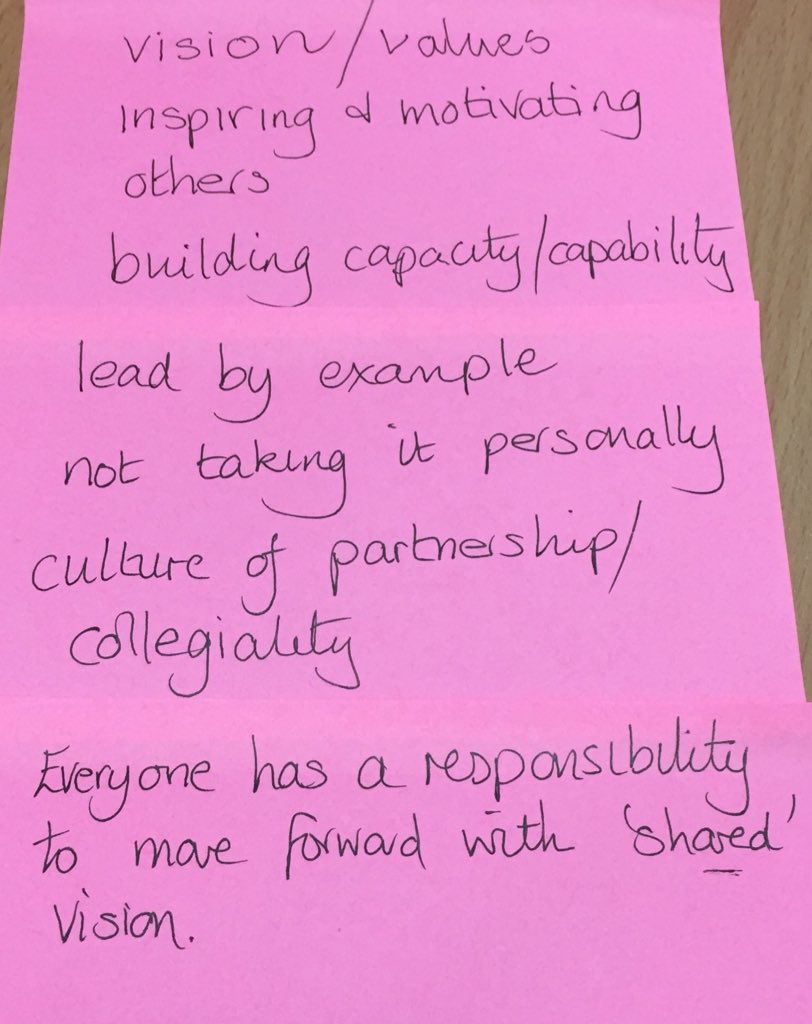 vision/values
inspiring & motivating
others
building capacity/capability
lead by example
not taking it personally
culture of partnership/
collegiality
Everyone has a responsibility
to move forward with 'shared'
vision.